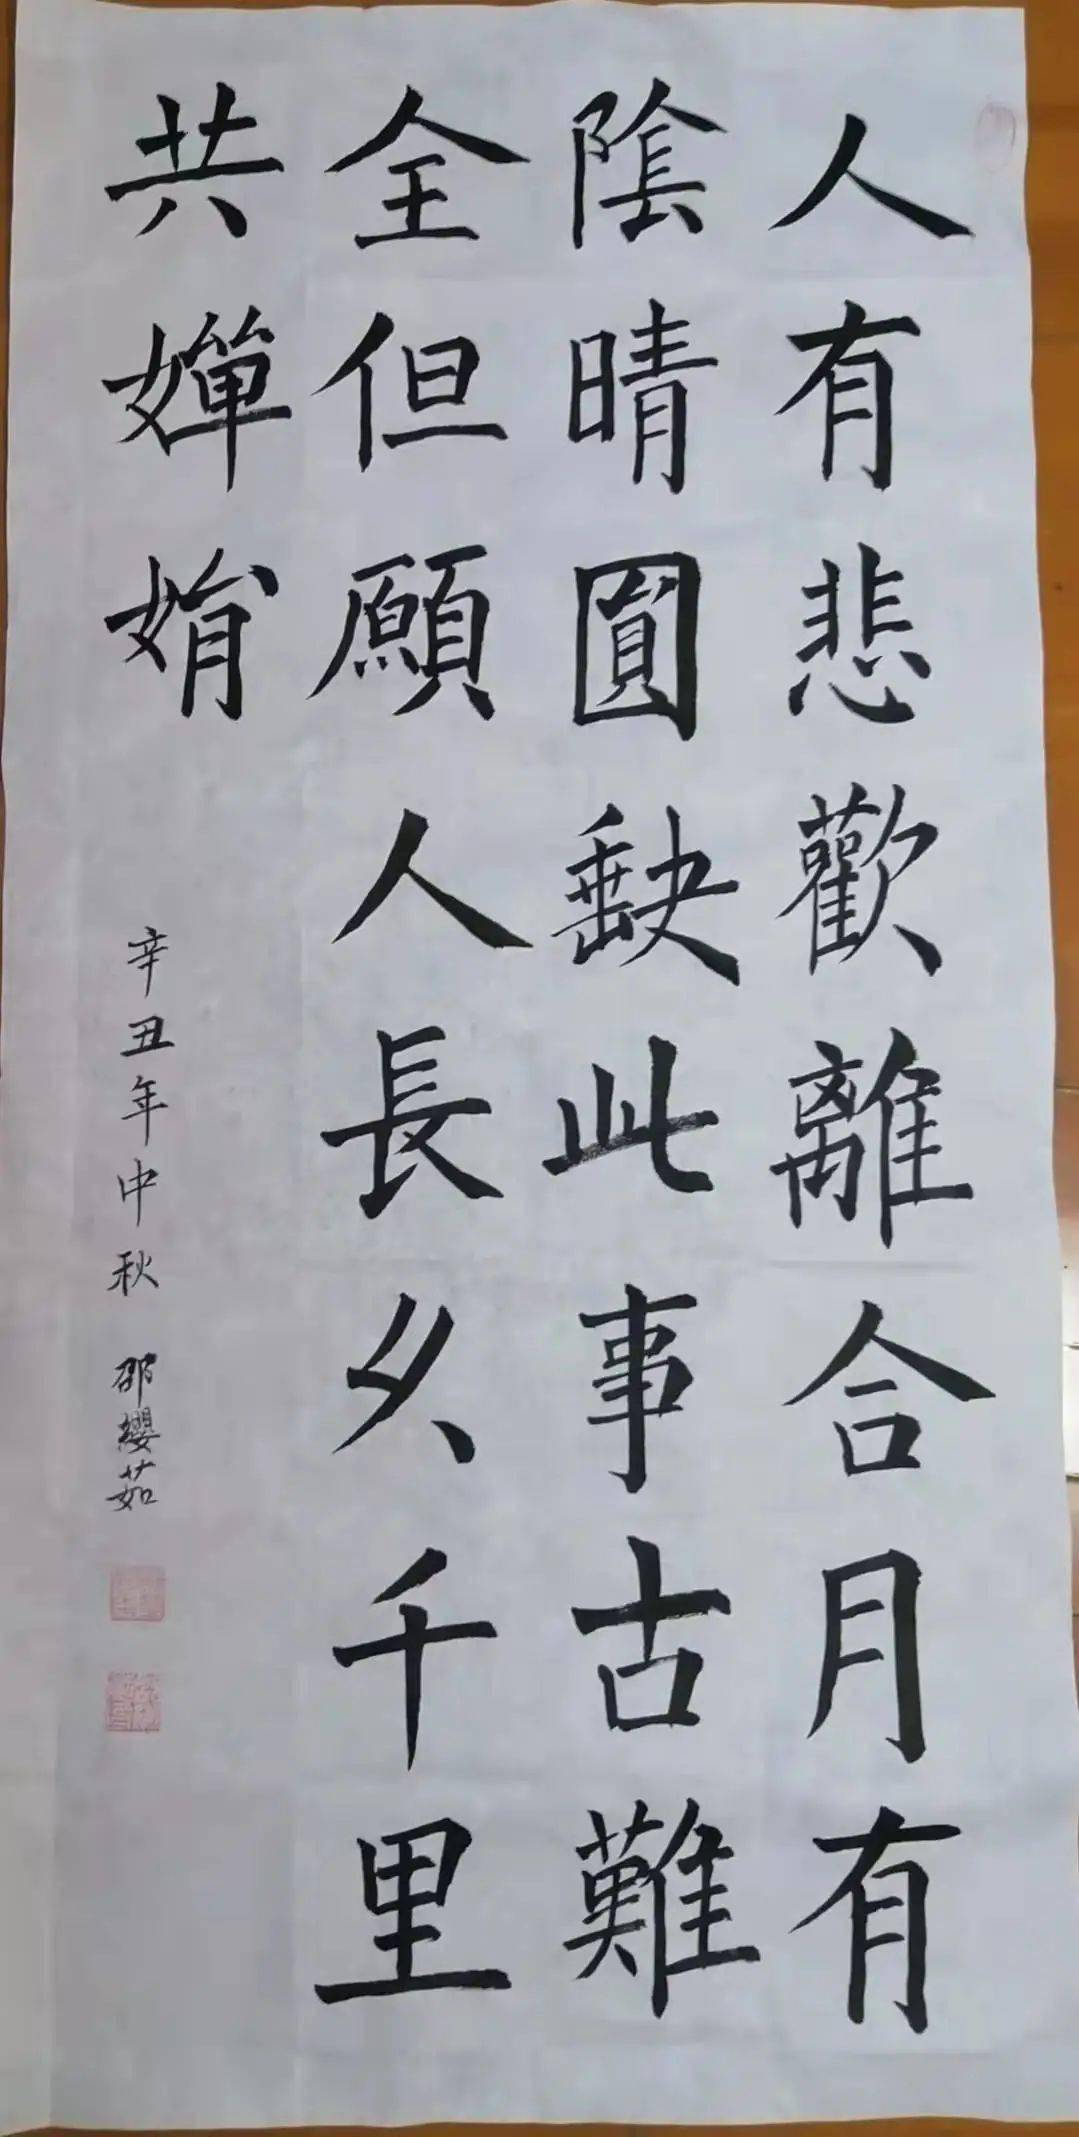 人有悲歡離合月有
陰晴圓缺此事古難
全但願人長久千里
共嬋娟
辛丑年中秋 邵纓茹